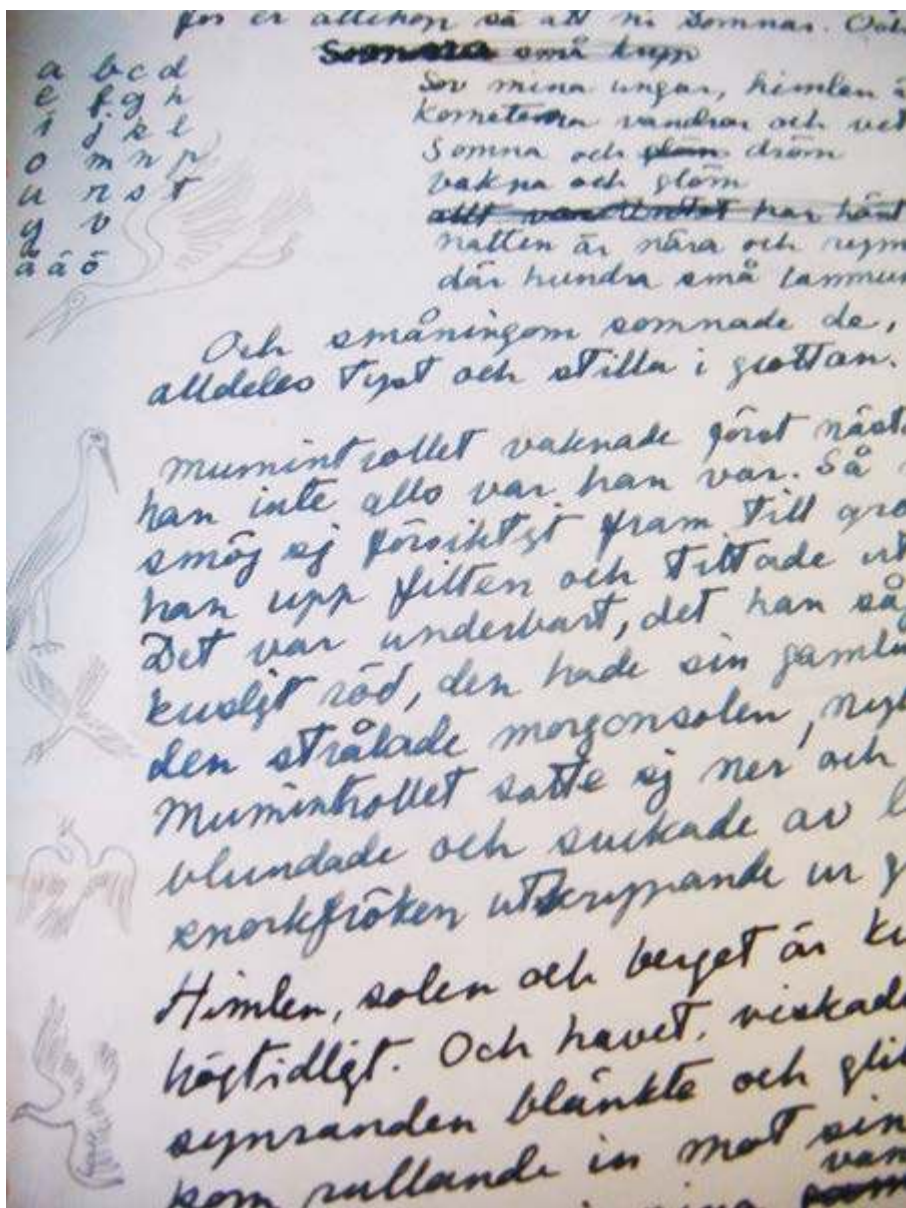 för er allihop så att ni somnar.
små kryp
a b c d
e f g h
i j k l
o m n p
u r s t
y v
å ä ö
Sov mina ungar, himlen ä
kometerna vandrar och vet
Somna och dröm
vakna och glöm
har hänt
natten är nära och rym
där hundra små lammun
Och småningom somnade de,
alldeles tyst och stilla i grottan.
Mumintrollet vaknade först näst
han inte alls var han var. Så
smög sj försiktigt fram till gro
han upp filten och tittade ut
Det var underbart, det han såg
kusligt röd, den hade sin gamla
den strålade morgonsolen, ny
Mumintrollet satte sj ner och
blundade och suckade av l
snorkfröken utkrypande ur g
Himlen, solen och berget är k
högtidligt. Och havet, viskade
synranden blänkte och gli
kom rullande in mot sin